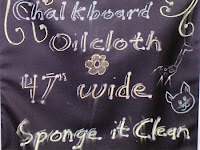 Chalkboard
Oilcloth
47" wide
Sponge it Clean